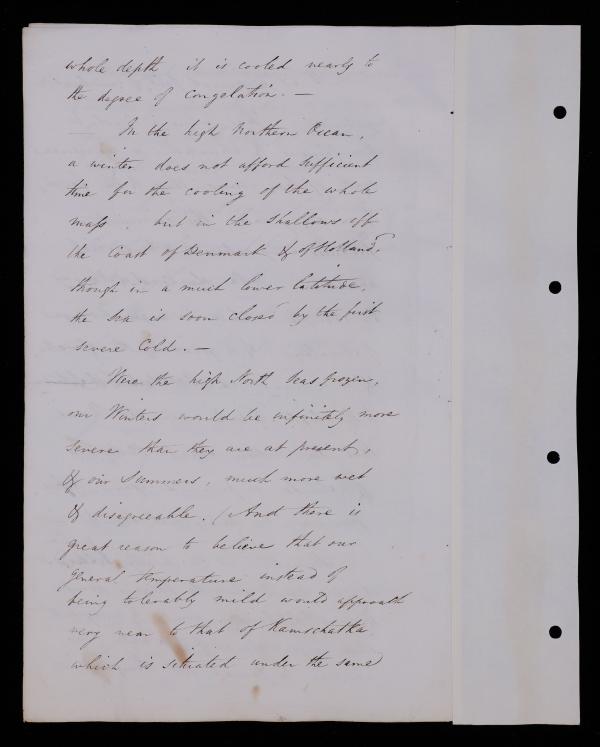 whole depth it is cooled nearly to
the degree of congelation. —
— In the high Northern Ocean,
a winter does not afford sufficient
time for the cooling of the whole
mass, but in the shallows off
the Coast of Denmark & of Holland,
though in a much lower latitude,
the sea is soon closed by the first
severe Cold. —
Were the high North seas frozen,
our Winters would be infinitely more
severe than they are at present,
& our Summers, much more wet
& disagreeable. (And there is
great reason to believe that our
general temperature instead of
being tolerably mild would approach
very near to that of Kamschatka
which is situated under the same